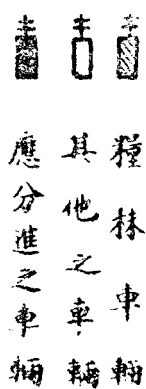 糧秣車輛
其他之車輛
應分進之車輛